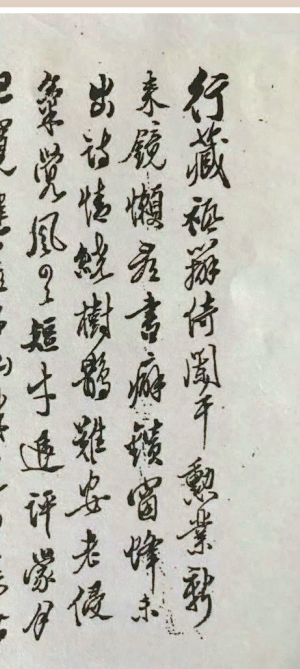 行藏祗辦倚闌干勳業新
來鏡懶看書癖鑽窗蜂未
出詩情繞樹鵲難安老侵
氣覺風雲短才退評蒙月
旦寬